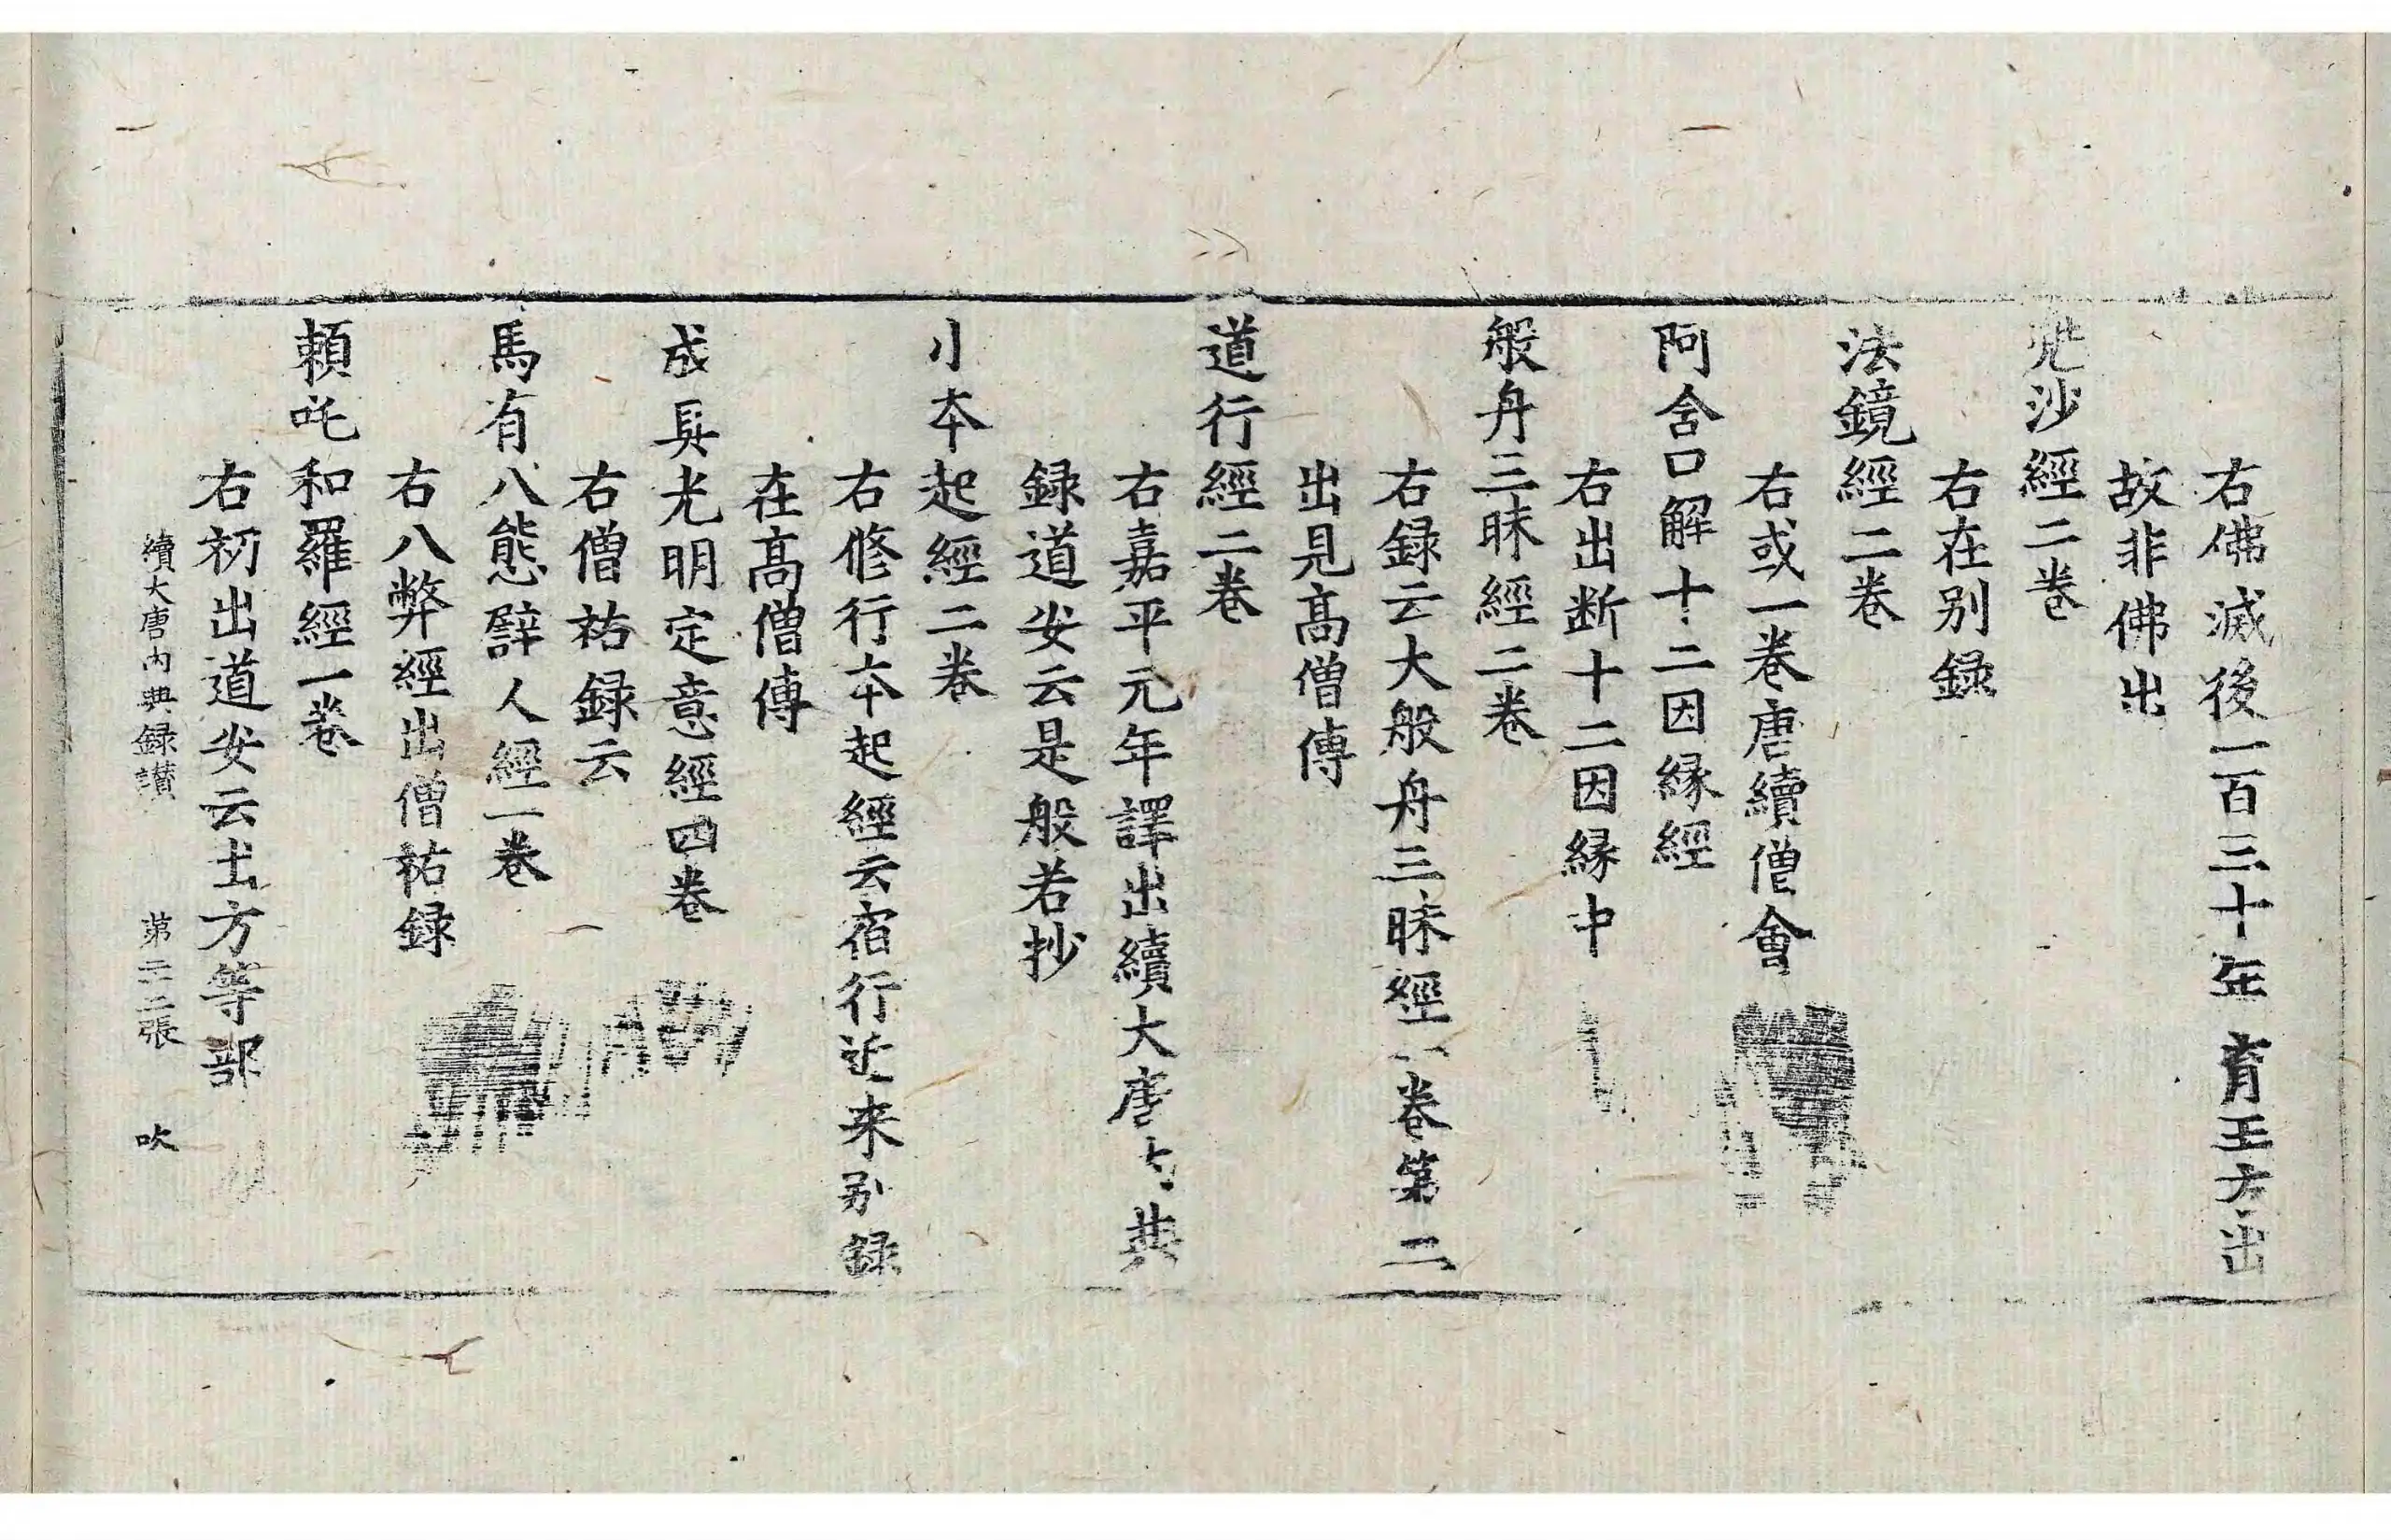 右佛滅後一百三十年育王方出
故非佛出
沙經二卷
右在别録
法鏡經二卷
右或一卷唐續僧會
阿含口解十二因縁經
右出断十二因縁中
般舟三昧經二卷
右録云大般舟三昧經卷第二
出見髙僧傳
道行經二卷
右嘉平元年譯出續大唐典
録道安云是般若抄
小夲起經二卷
右修行夲起經云宿行近来别録
在髙僧傳
成具光明定意經四卷
右僧祐録云
馬有八態譬人經一卷
右八弊經出僧祐録
頼吒和羅經一卷
右初出道安云出方等部
續大唐内典録讃 第二二張 吹